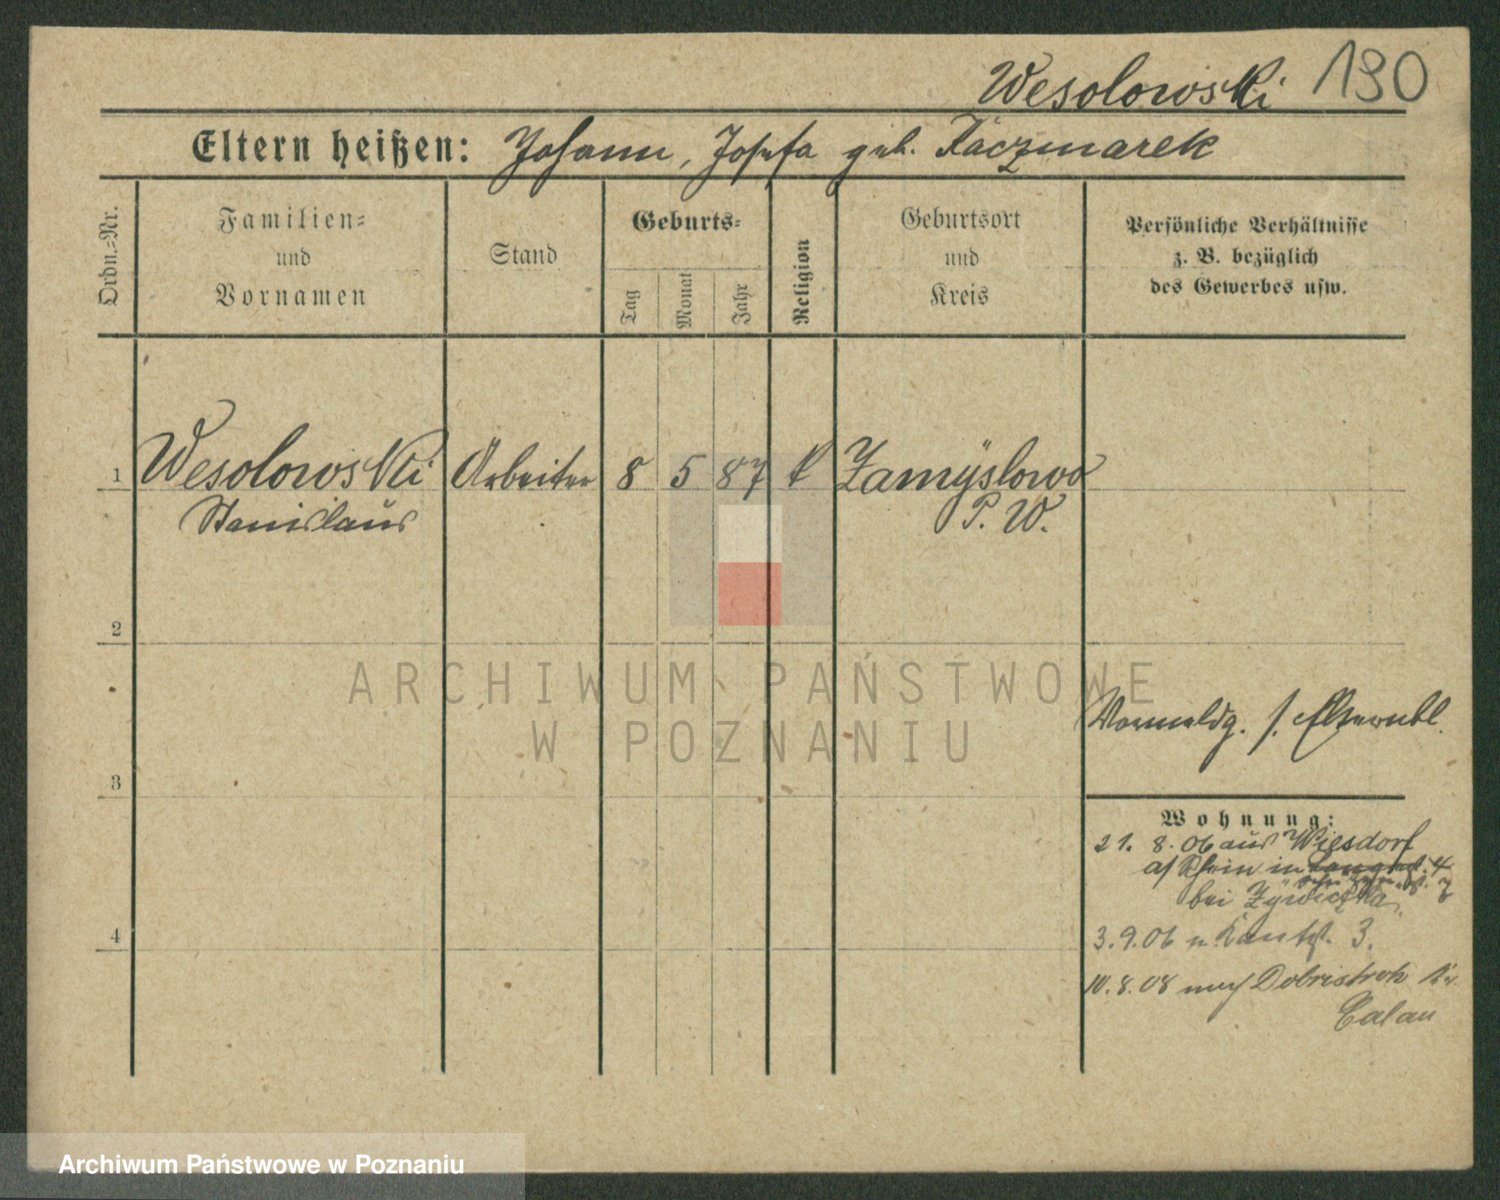 Wesolowski 190
Eltern heißen: Johann, Josefa geb. Kaczmarek
Ordn.=Nr.
Familien=
und
Vornamen
Stand
Geburts=
Tag
Monat
Jahr
Religion
Geburtsort
und
Kreis
Persönliche Verhältnisse
z. B. bezüglich
des Gewerbes usw.
1 Wesolowski Arbeiter 8 5 87 k Zamyslowo
Stanislaus P. W.
2
ARCHIWUM PAŃSTWOWE
W POZNANIU
Vormeldg. s. Elternbl.
3
Wohnung:
21. 8. 06 aus Wiesdorf
a/ Rhein in 4
bei Zywiczka 7
4
3. 9. 06 n. Kantst. 3.
10. 8. 08 nach Dobristroh Kr.
Calau
Archiwum Państwowe w Poznaniu